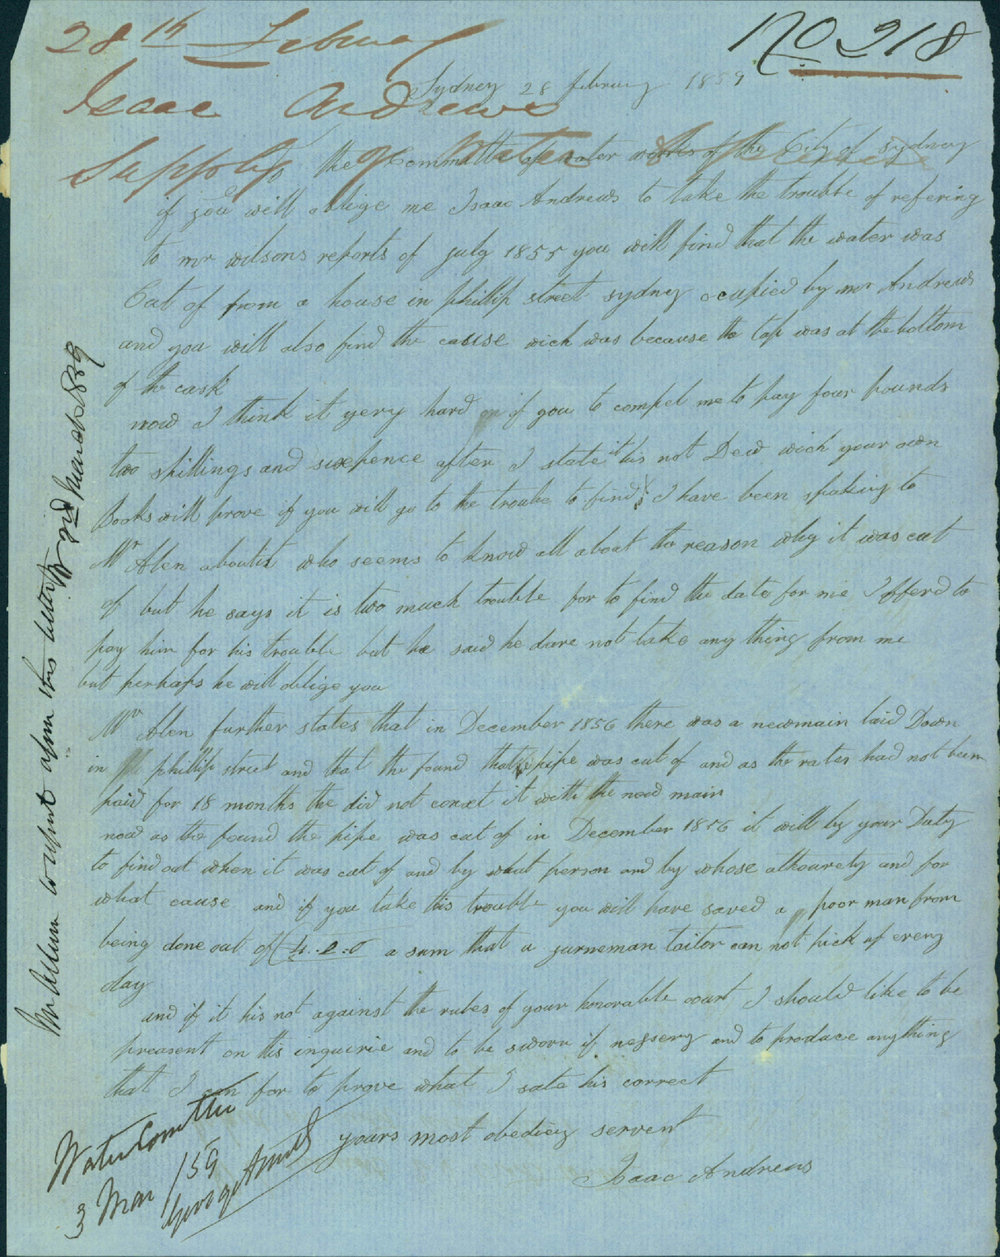 28th February
No 218
Isaac Andrews
Supply of Water
Sydney 28 february 1859
To the Committe of water works of the City of Sydney
if you will oblige me Isaac Andrews to take the trouble of refering
to mr wilsons reports of july 1855 you will find that the water was
Cut of from a house in phillip street sydney ocupied by mr Andrews
and you will also find the cause wich was because the tap was at the bottom
of the cask
now I think it very hard if you to compel me to pay four pounds
two shillings and sixpence after I state it his not Dew wich your own
Books will prove if you will go to the trouble to find I have been speaking to
Mr Alen about it who seems to know all about the reason why it was cut
of but he says it is two much trouble for to find the date for me I offerd to
pay him for his trouble but he said he dare not take any thing from me
but perhaps he will oblige you
Mr Alen further states that in December 1856 there was a new main laid Down
in phillip street and that the found that the pipe was cut of and as the rates had not been
paid for 18 months the did not conect it with the new main
now as the found the pipe was cut of in December 1856 it will by your Duty
to find out when it was cut of and by what person and by whose athourety and for
what cause and if you take this trouble you will have saved a poor man from
being done out of £4..2..6 a sum that a jurneman tailor can not pick up every
day
and if it his not against the rules of your honorable court I should like to be
preasent on this inquirie and to be sworn if nessery and to produce anything
that I can for to prove what I sate his correct
yours most obediey servent
Isaac Andrews
Water Comttee
3 Mar /59
George
Mr Allum to report upon this letter 3rd March 1859